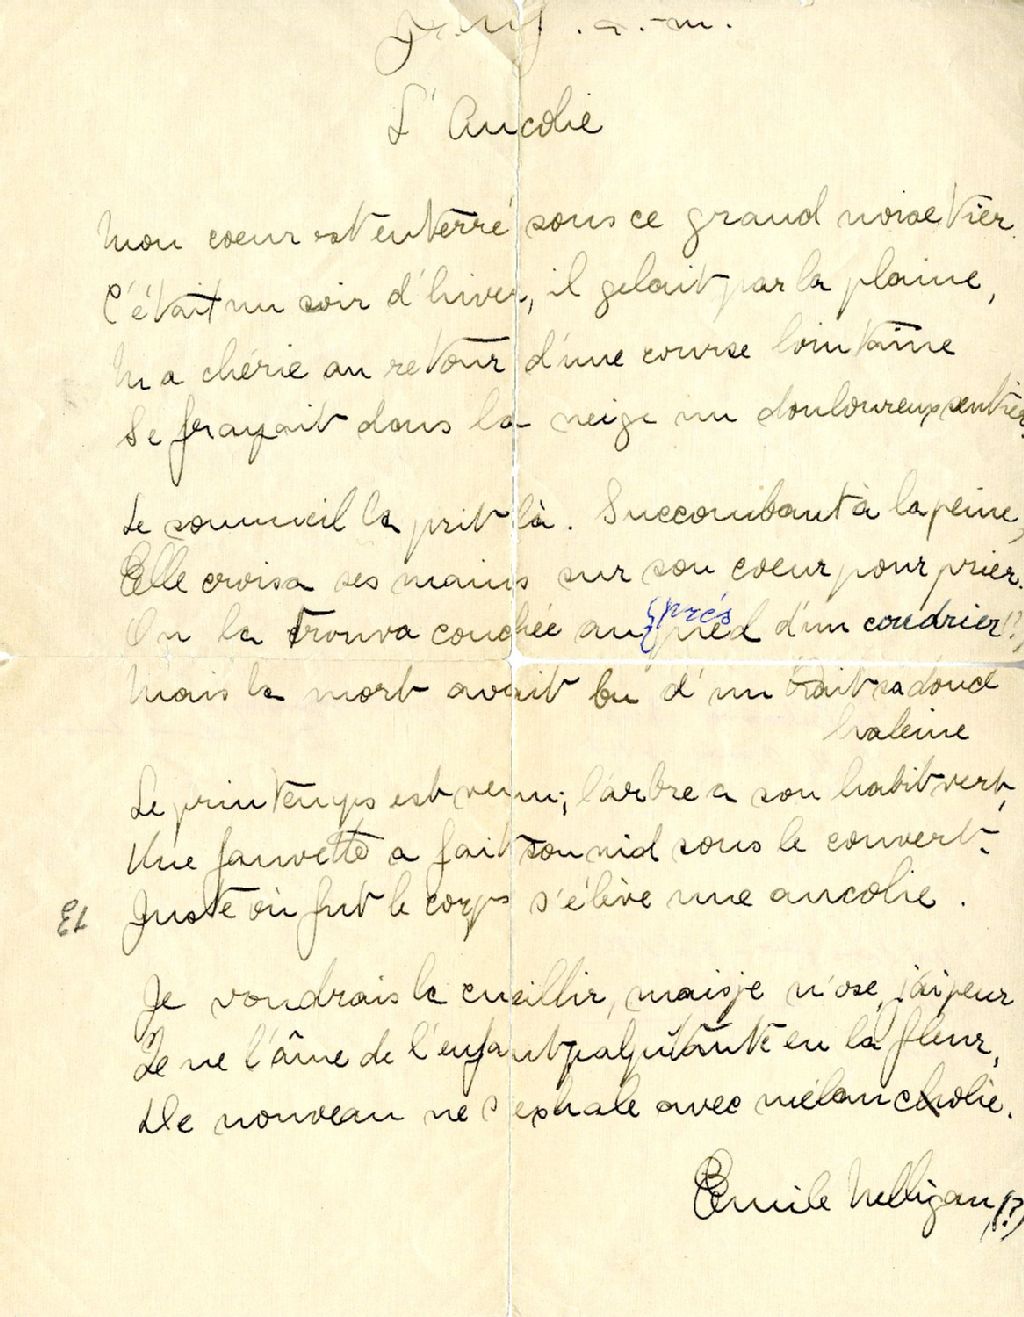 L'Ancolie
Mon coeur est enterré sous ce grand noisetier.
C'était un soir d'hiver, il gelait par la plaine,
Ma chérie au retour d'une course lointaine
Se frayait dans la neige un douloureux sentier.
Le sommeil la prit là. Succombant à la peine,
Elle croisa ses mains sur son coeur pour prier.
près
On la trouva couchée au pied d'un coudrier (?),
Mais la mort avait bu d'un trait sa douce
haleine
Le printemps est venu; l'arbre a son habit vert,
Une fauvette a fait son nid sous le couvert.
Juste où fut le corps s'élève une ancolie.
13
Je voudrais la cueillir, mais je n'ose, j'ai peur
Que l'âme de l'enfant palpitante en la fleur,
De nouveau ne s'exhale avec mélancholie.
Emile Nelligan (?)